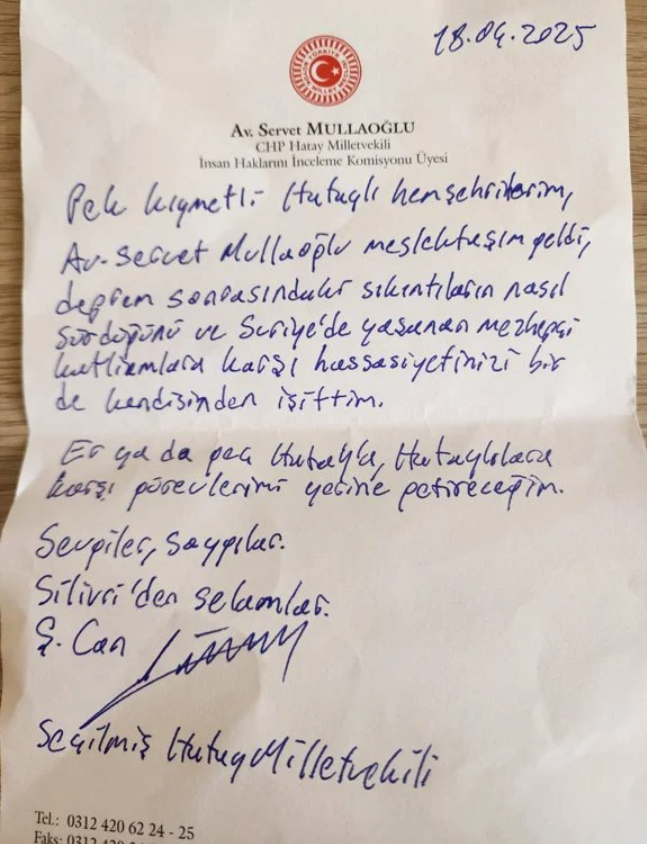 18.04.2025
Av. Servet MULLAOĞLU
CHP Hatay Milletvekili
İnsan Haklarını İnceleme Komisyonu Üyesi
Pek kıymetli Hataylı hemşehrilerim,
Av. Servet Mullaoğlu meslektaşım geldi,
deprem sonrasındaki sıkıntıların nasıl
sürdüğünü ve Suriye'de yaşanan mezhepçi
katliamlara karşı hassasiyetinizi bir
de kendisinden işittim.
Er ya da geç Hatay'a, Hataylılara
karşı görevlerimi yerine getireceğim.
Sevgiler, saygılar.
Silivri'den selamlar.
Ş. Can
Seçilmiş Hatay Milletvekili
Tel.: 0312 420 62 24 - 25
Faks: 0312